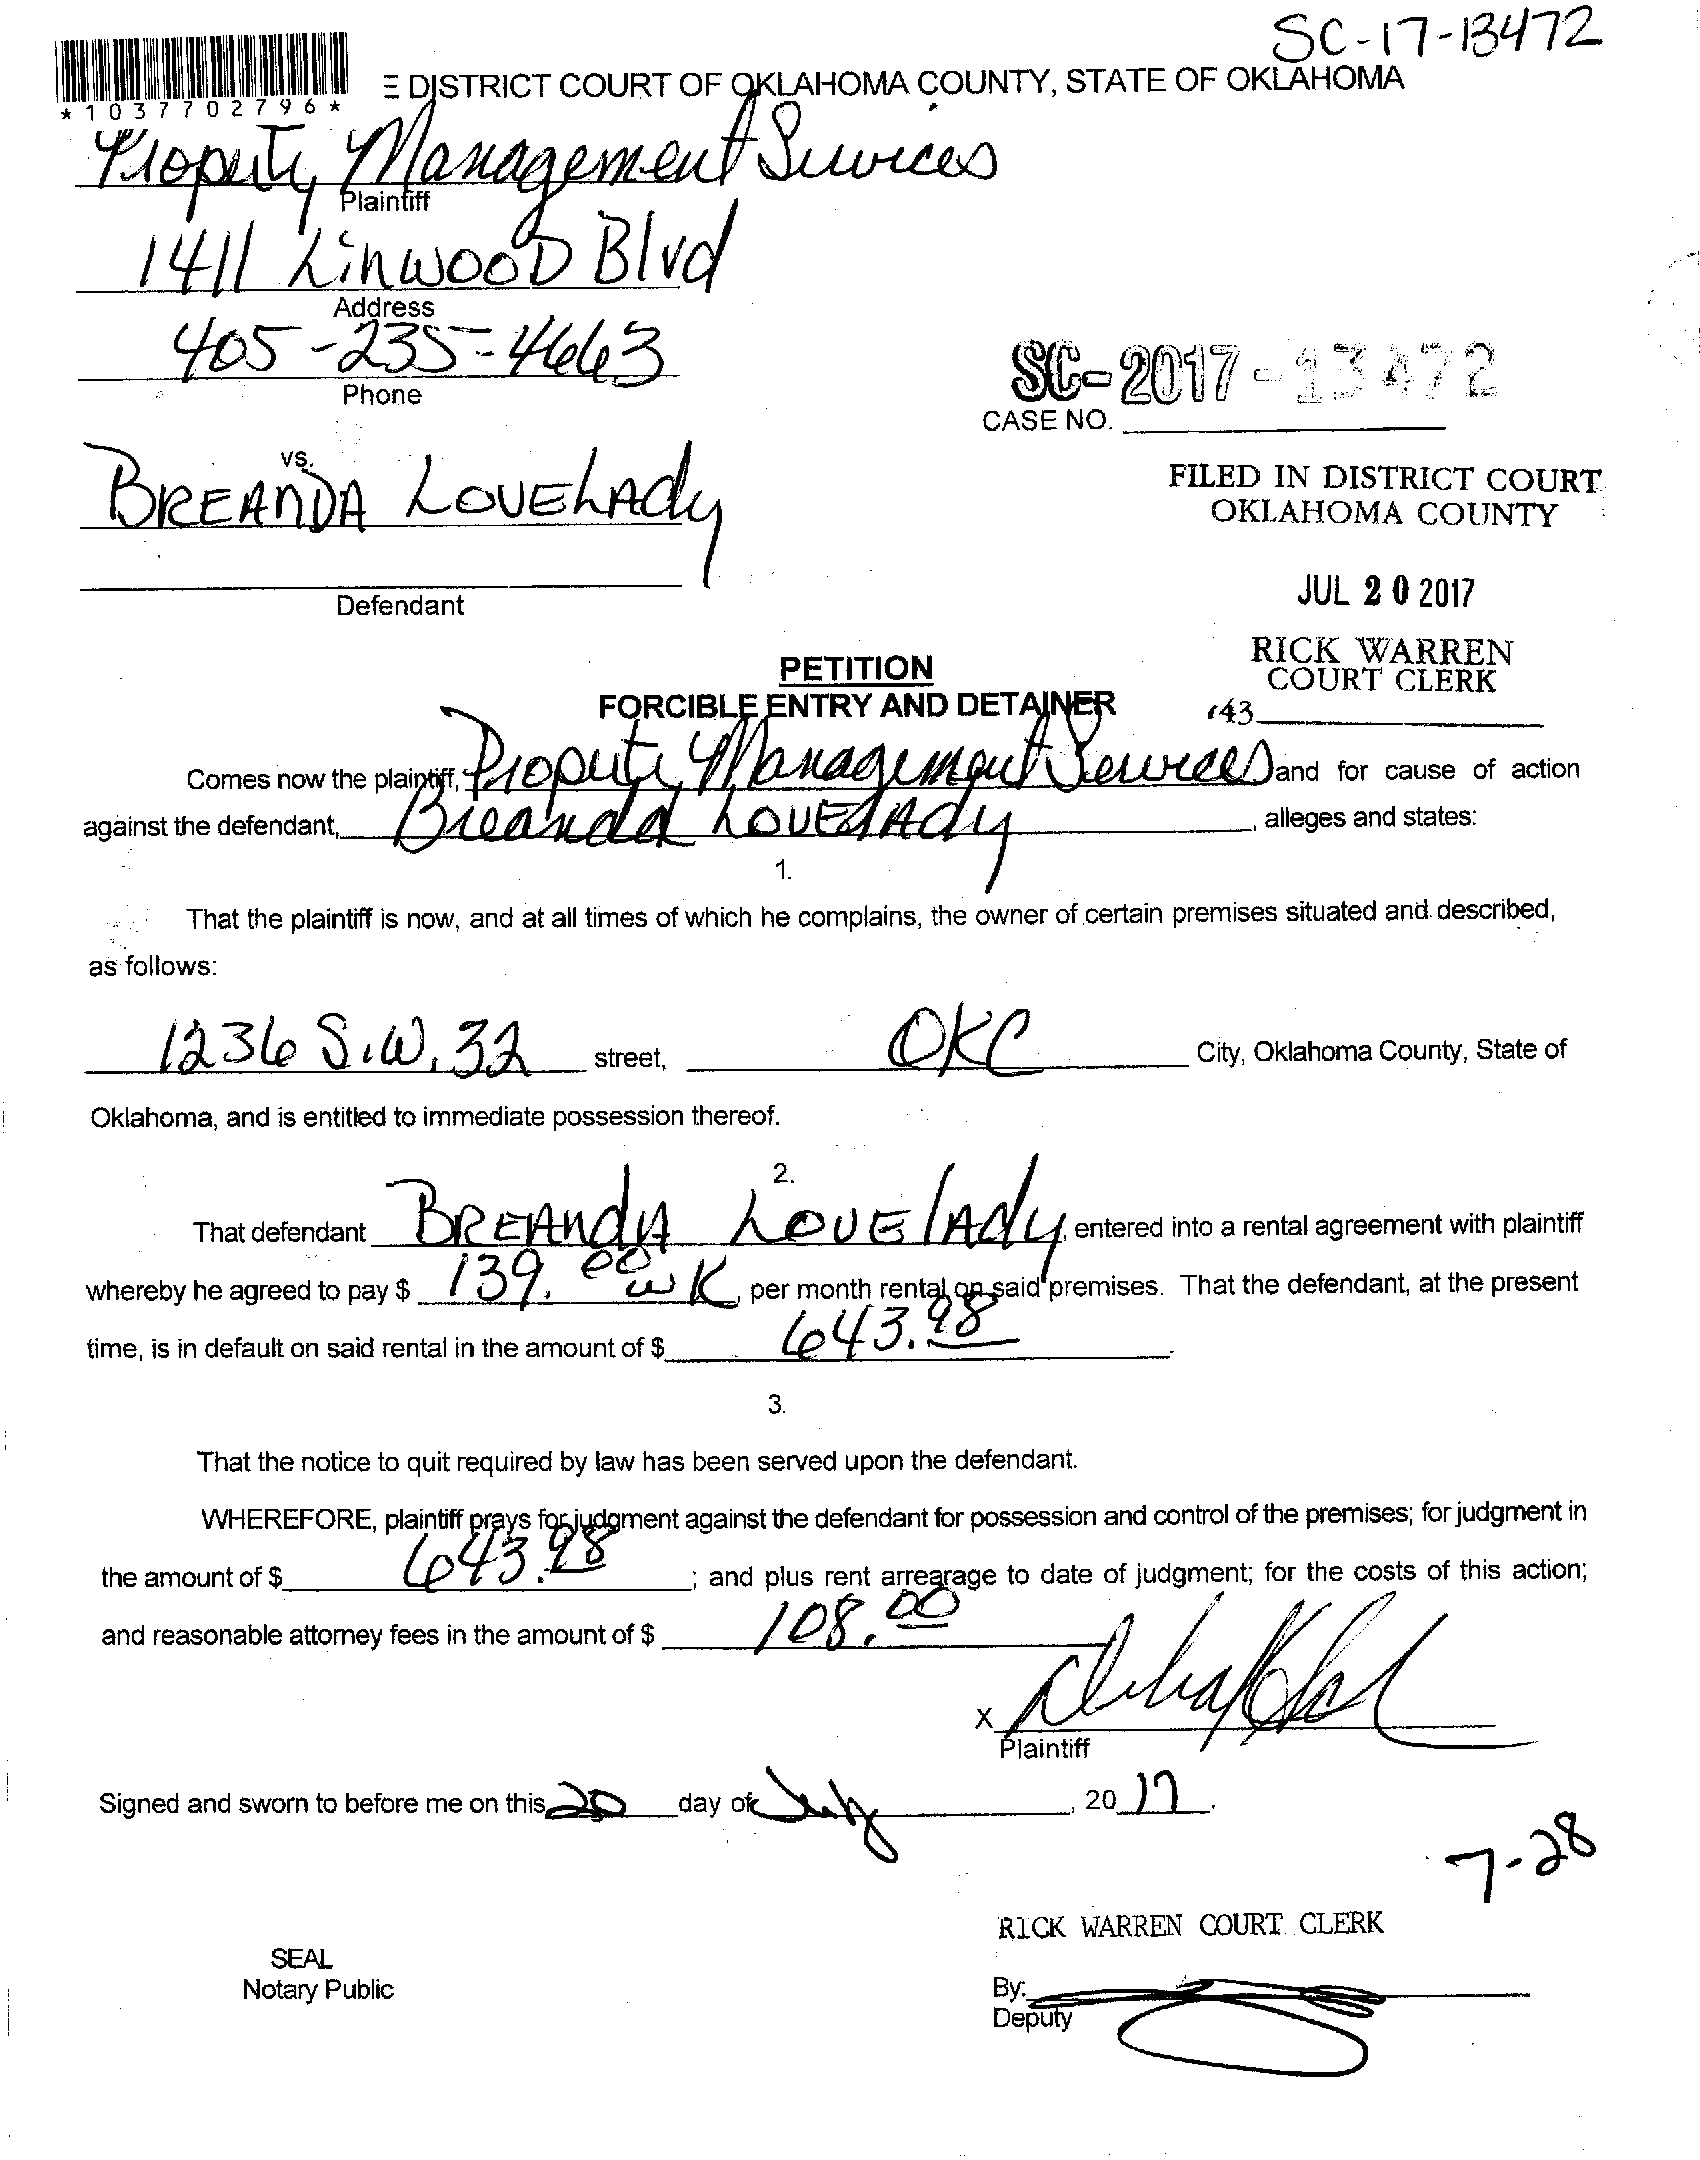 SC-17-13472
*1037702796*
E DISTRICT COURT OF OKLAHOMA COUNTY, STATE OF OKLAHOMA
Property Management Services
Plaintiff
1411 Linwood Blvd
Address
405-235-4663
Phone
SC-2017-13472
CASE NO.
vs.
BREANDA LOVELADY
FILED IN DISTRICT COURT
OKLAHOMA COUNTY
JUL 20 2017
Defendant
RICK WARREN
COURT CLERK
43
PETITION
FORCIBLE ENTRY AND DETAINER
Comes now the plaintiff, Property Management Services and for cause of action
against the defendant, Breanda LOVELADY, alleges and states:
1.
That the plaintiff is now, and at all times of which he complains, the owner of certain premises situated and described,
as follows:
1236 S.W. 32 street, OKC City, Oklahoma County, State of
Oklahoma, and is entitled to immediate possession thereof.
2.
That defendant BREANDA LOVELADY, entered into a rental agreement with plaintiff
whereby he agreed to pay $ 139.00 wK, per month rental on said premises. That the defendant, at the present
time, is in default on said rental in the amount of $ 643.98.
3.
That the notice to quit required by law has been served upon the defendant.
WHEREFORE, plaintiff prays for judgment against the defendant for possession and control of the premises; for judgment in
the amount of $ 643.98; and plus rent arrearage to date of judgment; for the costs of this action;
and reasonable attorney fees in the amount of $ 108.00
X
Plaintiff
Signed and sworn to before me on this 20 day of July, 2017.
7-28
RICK WARREN COURT CLERK
SEAL
Notary Public
By:
Deputy